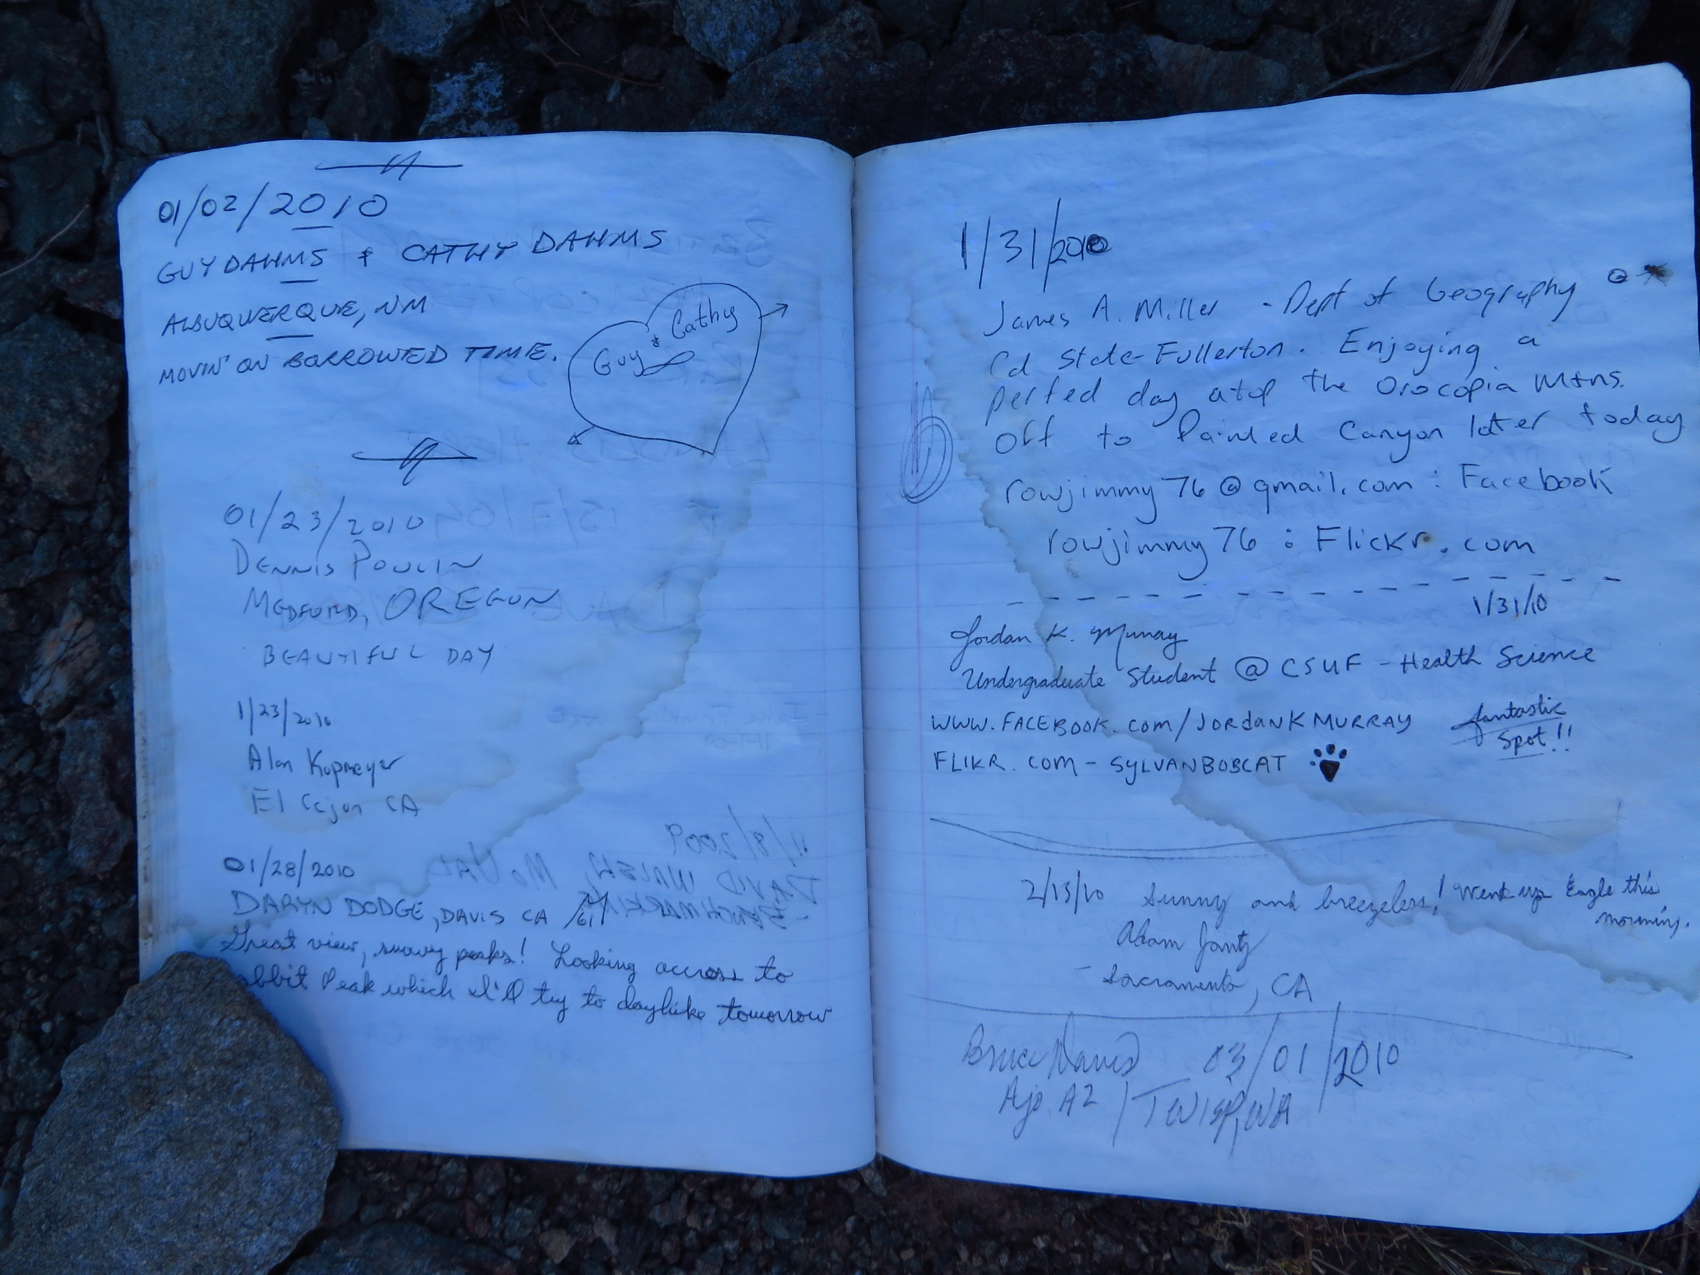 01/02/2010
GUY DAHMS & CATHY DAHMS
ALBUQUERQUE, NM
MOVIN' ON BORROWED TIME.
Guy & Cathy
01/23/2010
DENNIS POULIN
MEDFORD, OREGON
BEAUTIFUL DAY
1/23/2010
Alan Kopmeyer
El Cajon CA
01/28/2010
DARYN DODGE, DAVIS CA
Great view, snowy peaks! Looking across to
abbit Peak which I'll try to dayhike tomorrow
1/31/2010
James A. Miller - Dept of Geography @
Cal State-Fullerton. Enjoying a
perfect day atop the Orocopia Mtns.
Off to Painted Canyon later today
rowjimmy76@gmail.com : Facebook
rowjimmy76 : Flickr.com
1/31/10
Jordan K. Murray
Undergraduate Student @ CSUF - Health Science
WWW.FACEBOOK.COM/JORDANKMURRAY
fantastic
spot!!
FLIKR.COM - SYLVANBOBCAT
2/13/10 Sunny and breezeless! Went up Eagle this
morning.
Adam Jantz
- Sacramento, CA
Bruce Davis 03/01/2010
Ajo AZ / TWISP, WA